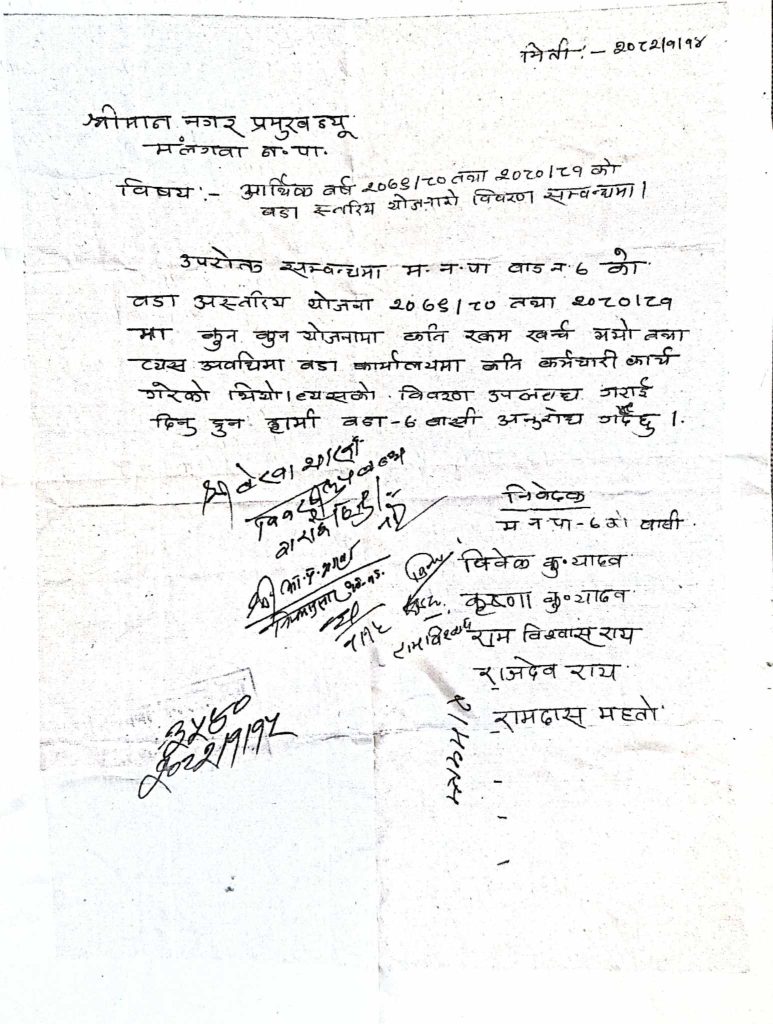 मिती:- २०८२/१/१४
श्रीमान नगर प्रमुखज्यू
मलंगवा न.पा.
विषय:- आर्थिक वर्ष २०७९/८० तथा २०८०/८१ को
वडा स्तरिय योजनाको विवरण सम्बन्धमा।
उपरोक्त सम्बन्धमा म.न.पा वाड न ६ को
वडा अस्तरिय योजना २०७९/८० तथा २०८०/८१
मा कुन कुन योजनामा कति रकम खर्च भयो तथा
त्यस अवधिमा वडा कार्यालयमा कति कर्मचारी कार्य
गरेको थियो। त्यसको विवरण उपलब्ध गराई
दिनु हुन हामी वडा-६ बासी अनुरोध गर्दछु।
श्री योजना शाखा
निवेदक
म न पा-६ का बासी.
विवेक कु॰यादव
कृष्णा कु॰यादव
राम विश्वास राय
राम विश्वास
राजदेव राय
रामदास महतो
रामदास
३४६०
२०८२/१/१५